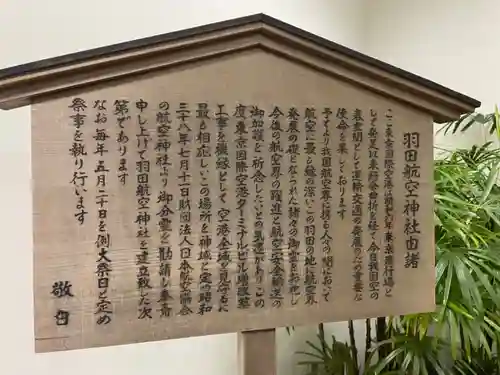 羽田航空神社由緒
ここ東京国際空港は昭和六年東京飛行場と
して発足以来幾多の曲折を経て今日我国の空の
表玄関として運輸交通の発展のため重要な
使命を果しております
予てより我国航空界に携る人々の間において
航空に最も縁の深いこの羽田の地に航空界
発展の礎となられた諸々の御霊をお祀りし
今後の航空界の躍進と航空安全輸送の
御加護を祈念したいとの気運があり この
度東京国際空港ターミナルビル増改築
工事を機縁として 空港全域を見守るに
最も相応しいこの場所を神域と定め昭和
三十八年七月十一日財団法人日本航空協会
の航空神社より御分霊を勧請し奉斎
申し上げて羽田航空神社を建立致した次
第であります
なお毎年五月二十日を例大祭日と定め
祭事を執り行います
敬白